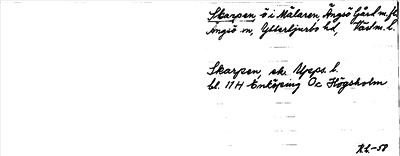 Skarpen, ö i Mälaren, Ängsö Gård m.fl.
Ängsö sn, Yttertjurbo hd, Västm. l.
Skarpen, sk. Upps. l.
bl. 11 H Enköping Oc Högholm
K.L.-58